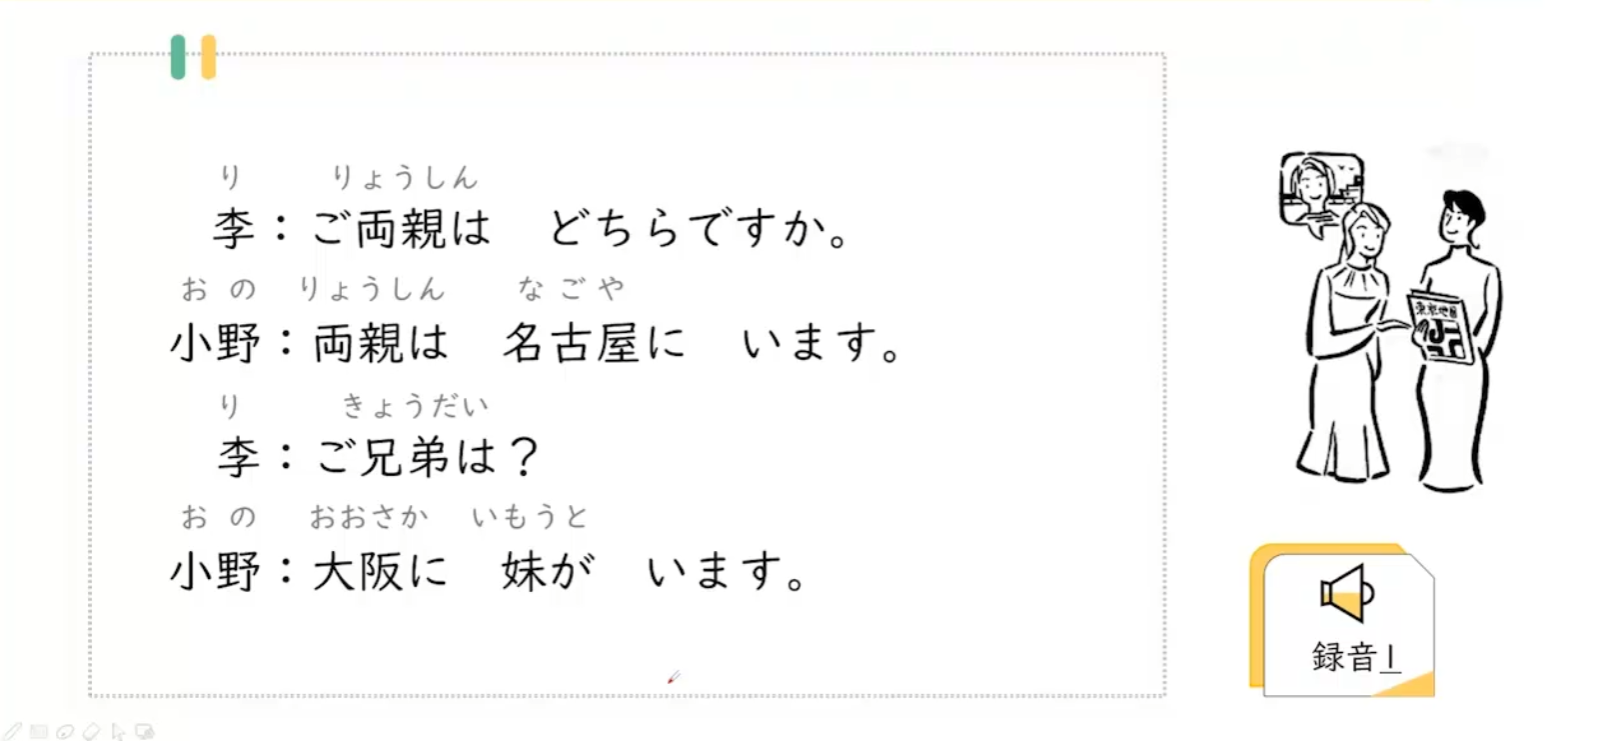 り りょうしん
李：ご両親は どちらですか。
おの りょうしん なごや
小野：両親は 名古屋に います。
り きょうだい
李：ご兄弟は？
おの おおさか いもうと
小野：大阪に 妹が います。
東京地図
録音1